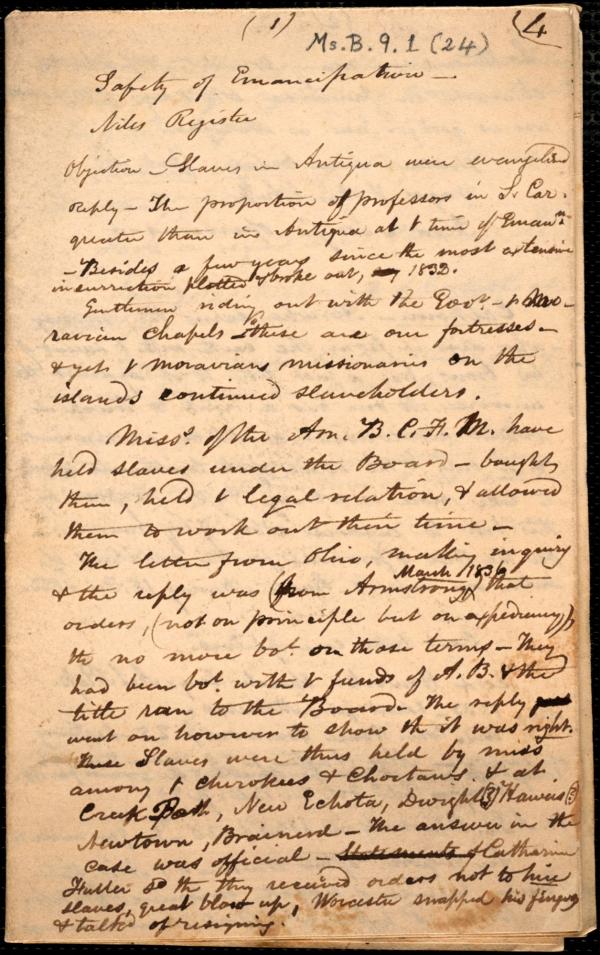 (1)
(4
Ms. B. 9. 1 (24)
Safety of Emancipation —
Niles Register
Objection — Slaves in Antigua were evangelized
Reply — The proportion of professors in S. Car.
greater than in Antigua at t time of Emanⁿ
— Besides a few years since the most extensive
insurrection plotted & broke out, 1832.
Gentlemen riding out with the Govr. — t Mo-
ravian Chapels "these are our fortresses —
& yet t moravians missionaries on the
islands continued slaveholders.
Misss. of the Am. B. C. F. M. have
held slaves under the Board — bought
them, held t legal relation, & allowed
them to work out their time —
The letter from Ohio, making inquiry
March 1836
& the reply was (from Armstrong) that
orders, (not on principle but on expediency),
th no more bot. on those terms — They
had been bot. with t funds of A. B. & the
title ran to the Board. The reply
went on however to show th it was right.
These Slaves were thus held by miss
among t Cherokees & Choctaws. & at
Creek Path, New Echota, Dwight (3) Haweis (3)
Newtown, Brainerd — The answer in the
case was official — Statements of Catharine
Fuller so th they received orders not to hire
slaves, great blow up, Worcester snapped his fingers
& talked of resigning.